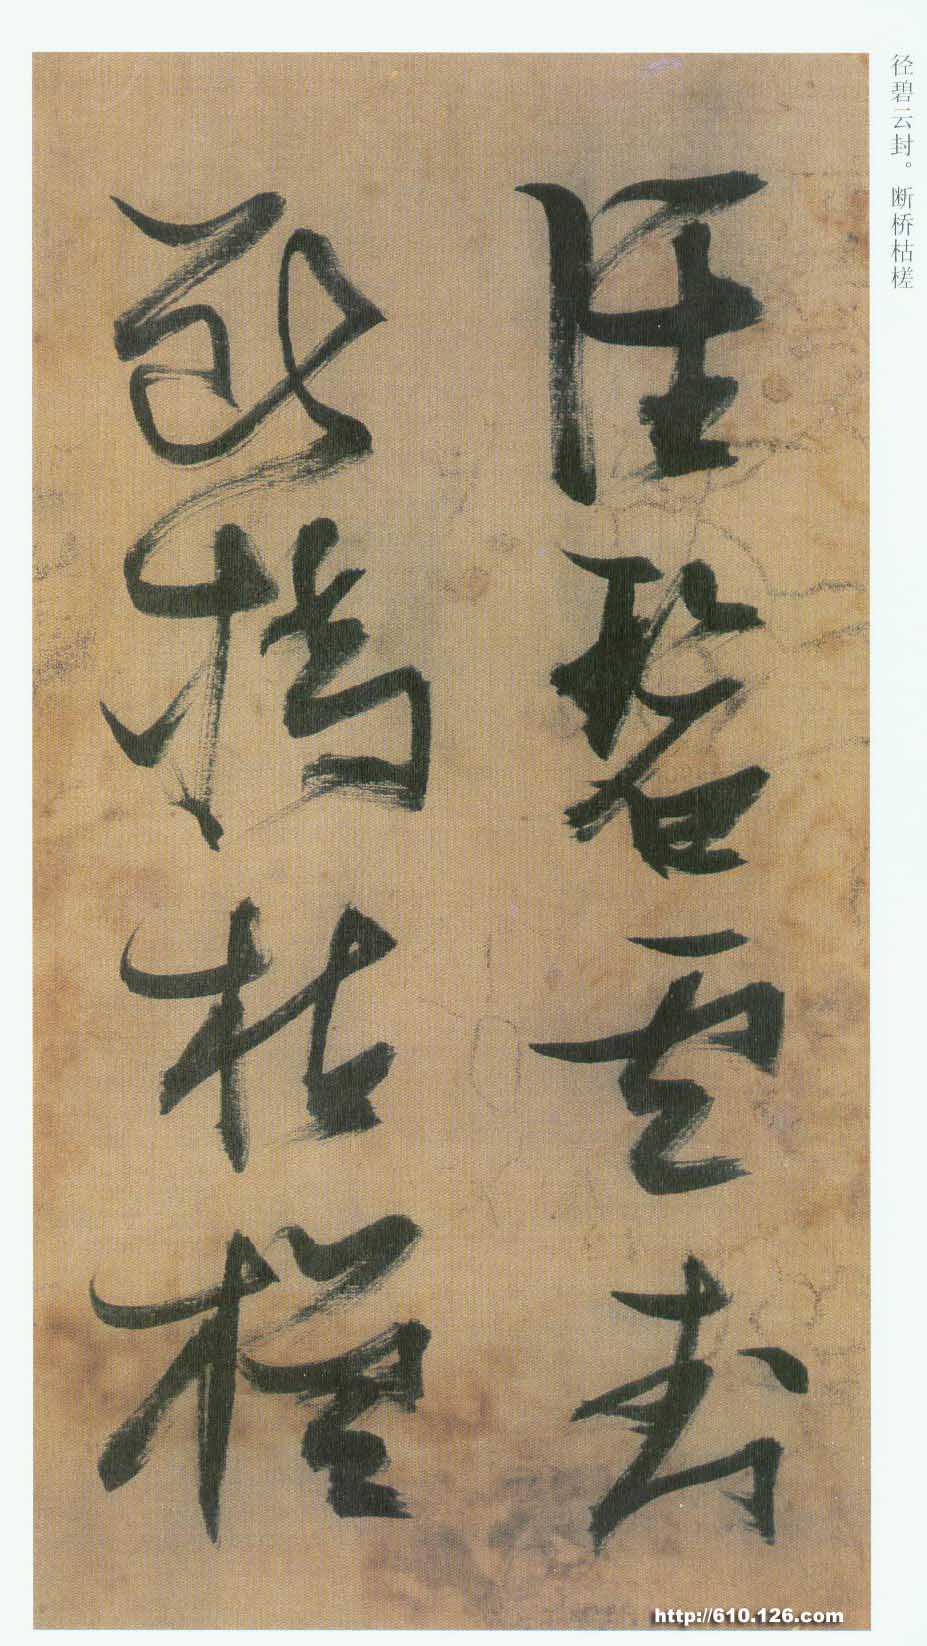 径碧云封。断桥枯槎
径碧云封
断桥枯槎
http://610.126.com